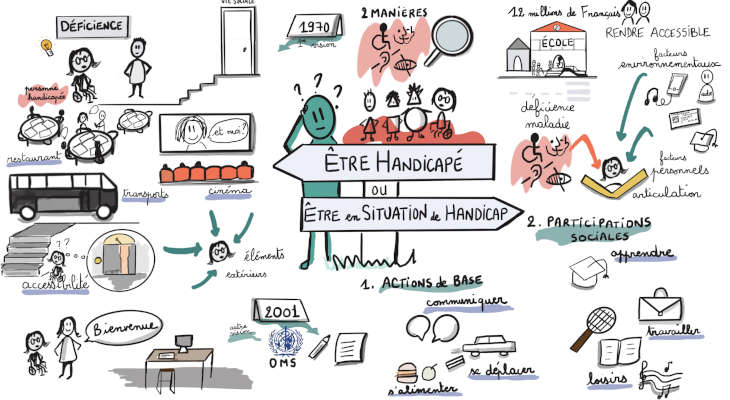 VIE SOCIALE
DÉFICIENCE
personne
handicapée
restaurant
et moi?
transports
cinéma
??
accessibilité
éléments
extérieurs
Bienvenue
1970
1re vision
2 MANIÈRES
? ? ?
ÊTRE HANDICAPÉ
OU
ÊTRE en SITUATION de HANDICAP
2001
autre
vision
OMS
1. ACTIONS de BASE
communiquer
se déplacer
s'alimenter
12 millions de Français
ÉCOLE
déficience
maladie
RENDRE ACCESSIBLE
facteurs
environnementaux
facteurs
personnels
articulation
2. PARTICIPATIONS
SOCIALES
apprendre
travailler
loisirs